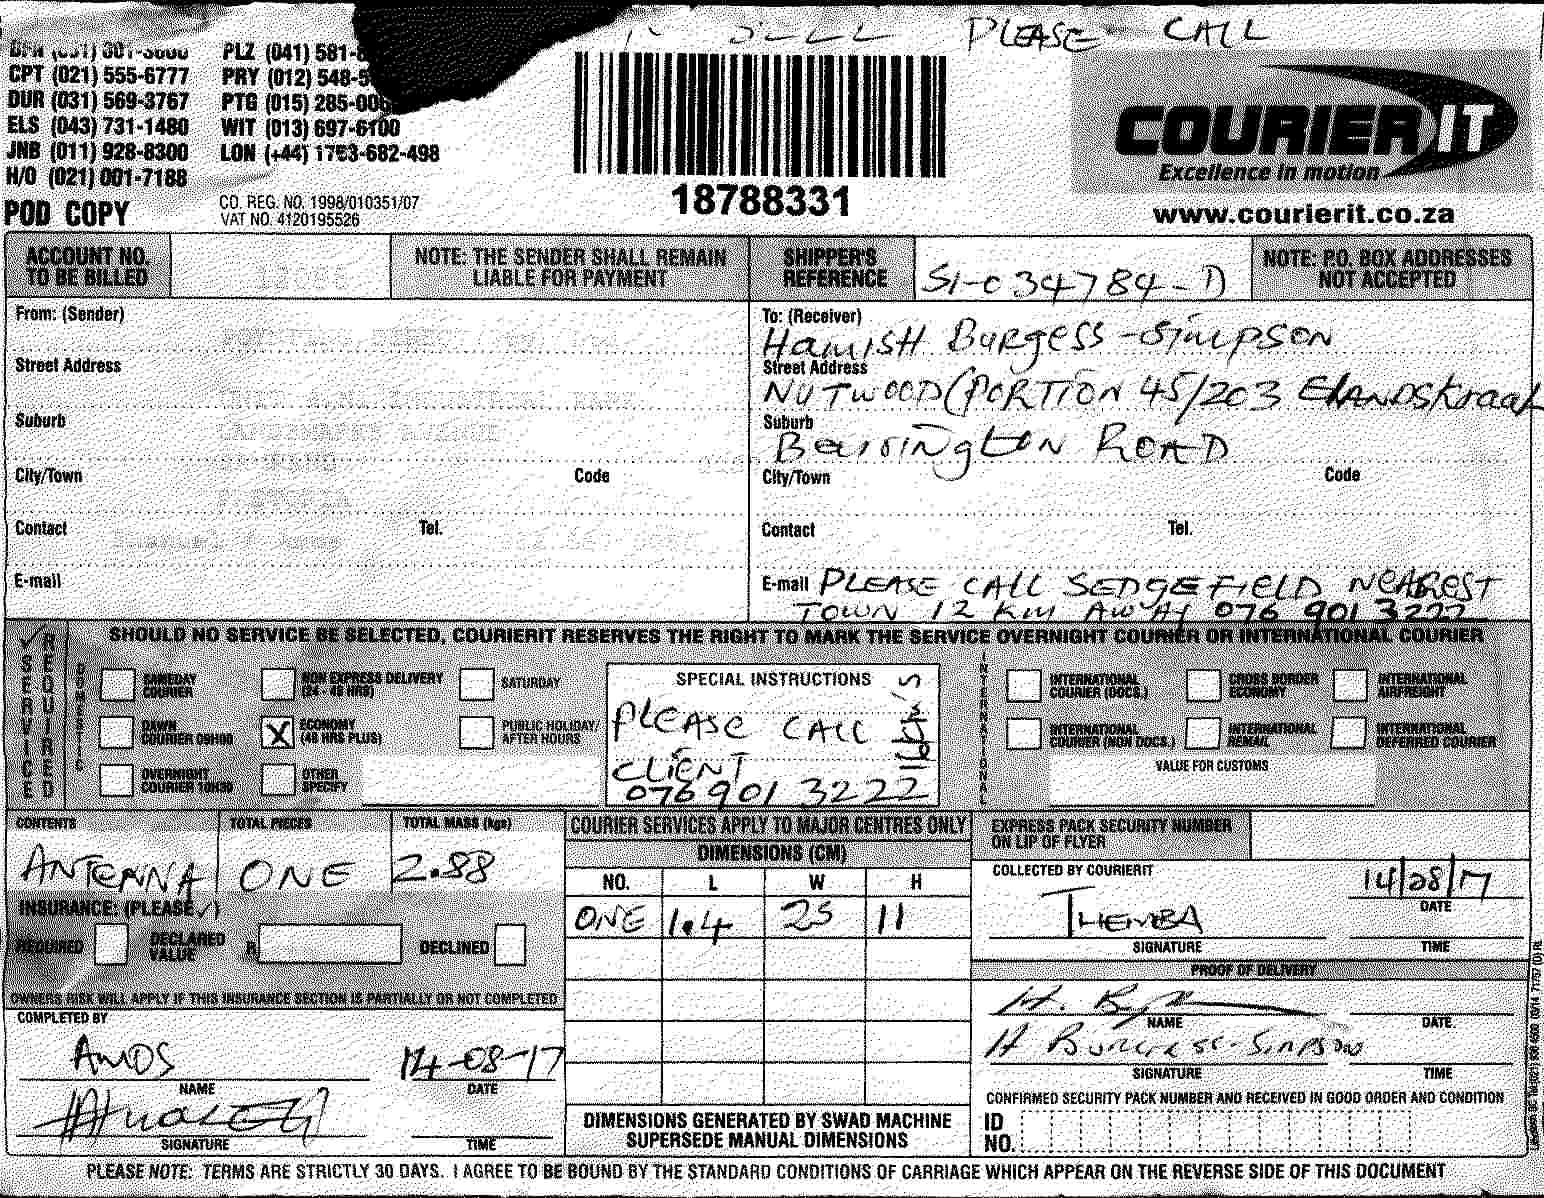 PLEASE CALL
CPT (021) 555-6777
DUR (031) 569-3767
ELS (043) 731-1480
JNB (011) 928-8300
H/O (021) 001-7188
PLZ (041) 581-
PRY (012) 548-
PTG (015) 285-00
WIT (013) 697-6100
LON (+44) 1753-682-498
POD COPY
CO. REG. NO. 1998/010351/07
VAT NO. 4120195526
18788331
COURIER IT
Excellence in motion
www.courierit.co.za
ACCOUNT NO. TO BE BILLED
NOTE: THE SENDER SHALL REMAIN LIABLE FOR PAYMENT
SHIPPER'S REFERENCE
SI-034784-D
NOTE: P.O. BOX ADDRESSES NOT ACCEPTED
From: (Sender)
Street Address
Suburb
City/Town Code
Contact Tel.
E-mail
To: (Receiver)
Hamish Burgess-Simpson
Street Address
NUTWOOD (PORTION 45/203 Elandskraal
Suburb
ROAD
City/Town Code
Contact Tel.
E-mail PLEASE CALL SEDGEFIELD NEAREST
TOWN 12 Km AWAY 076 901 3222
SERVICE REQUIRED
SHOULD NO SERVICE BE SELECTED, COURIERIT RESERVES THE RIGHT TO MARK THE SERVICE OVERNIGHT COURIER OR INTERNATIONAL COURIER
DOMESTIC
SAMEDAY COURIER
NON EXPRESS DELIVERY (24 - 48 HRS)
SATURDAY
DAWN COURIER 09H00
X ECONOMY (48 HRS PLUS)
PUBLIC HOLIDAY/ AFTER HOURS
OVERNIGHT COURIER 10H30
OTHER SPECIFY
SPECIAL INSTRUCTIONS
PLEASE CALL
CLIENT
076 901 3222
INTERNATIONAL
INTERNATIONAL COURIER (DOCS.)
CROSS BORDER ECONOMY
INTERNATIONAL AIRFREIGHT
INTERNATIONAL COURIER (NON DOCS.)
INTERNATIONAL REMAIL
INTERNATIONAL DEFERRED COURIER
VALUE FOR CUSTOMS
CONTENTS TOTAL PIECES TOTAL MASS (kgs)
ANTENNA ONE 2.88
INSURANCE: (PLEASE ✓)
REQUIRED DECLARED VALUE R DECLINED
OWNERS RISK WILL APPLY IF THIS INSURANCE SECTION IS PARTIALLY OR NOT COMPLETED
COMPLETED BY
AMOS 14-08-17
NAME DATE
SIGNATURE TIME
COURIER SERVICES APPLY TO MAJOR CENTRES ONLY
DIMENSIONS (CM)
NO. L W H
ONE 1.4 25 11
DIMENSIONS GENERATED BY SWAD MACHINE
SUPERSEDE MANUAL DIMENSIONS
EXPRESS PACK SECURITY NUMBER ON LIP OF FLYER
COLLECTED BY COURIERIT
THEMBA 14/08/17
DATE
SIGNATURE TIME
PROOF OF DELIVERY
NAME DATE
H Burgess-Simpson
SIGNATURE TIME
CONFIRMED SECURITY PACK NUMBER AND RECEIVED IN GOOD ORDER AND CONDITION
ID NO.
PLEASE NOTE: TERMS ARE STRICTLY 30 DAYS. I AGREE TO BE BOUND BY THE STANDARD CONDITIONS OF CARRIAGE WHICH APPEAR ON THE REVERSE SIDE OF THIS DOCUMENT